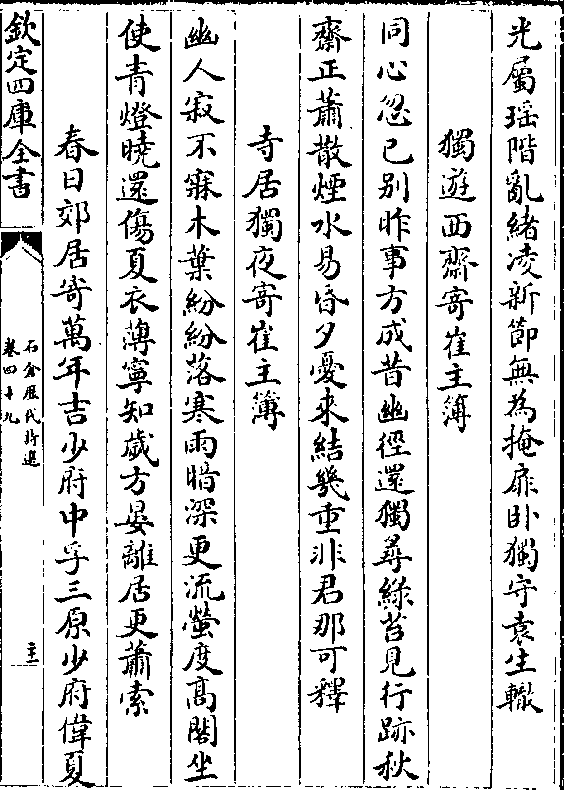 光屬瑶階亂緒凌新節無為掩扉卧獨守袁生轍
獨遊西齋寄崔主簿
同心忽已别昨事方成昔幽徑還獨尋綠苔見行跡秋
齋正蕭散煙水易昏夕憂來結幾重非君那可釋
寺居獨夜寄崔主簿
幽人寂不寐木葉紛紛落寒雨暗深更流螢度高閣坐
使青燈曉還傷夏衣薄寧知歲方晏離居更蕭索
春日郊居寄萬年吉少府中孚三原少府偉夏
欽定四庫全書
石倉歷代詩選
卷四十九